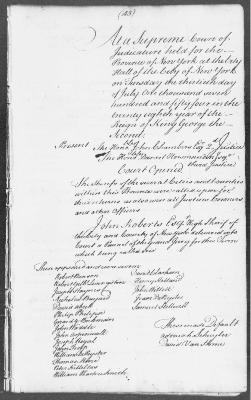 At a Supreme Court of
Judicature held for the
Province of New York at the City
Hall of the City of New York
on Tuesday the thirtieth day
of July One thousand seven
hundred and fifty four in the
twenty eighth year of the
Reign of King George the
Second.
Present The Honble John Chambers Esqr 2d Justice
The Honble Daniel Horsmanden Esqr
Court Opened
The Sheriffs of the several Cities and Counties
within this Province were called upon for
their returns as also were all Justices Coroners
and other Officers
John Roberts Esqr High Sheriff of
the City and County of New York delivered into
Court a Pannel of the Grand Jury for this Term
which being called over
Then appeared and were sworn
Robert Benson
Robert Livingston
Jacobus
Bayard
David Abeel
Philip Philipse
Gerardus Beekman
John Waddle
John
Joseph Royal
John
William DePeyster
Thomas
Peter
William
David Clarkson
Henry Holland
John
Isaac DePeyster
Samuel Stilwell
These made Default
Schuyler
David Van Horne